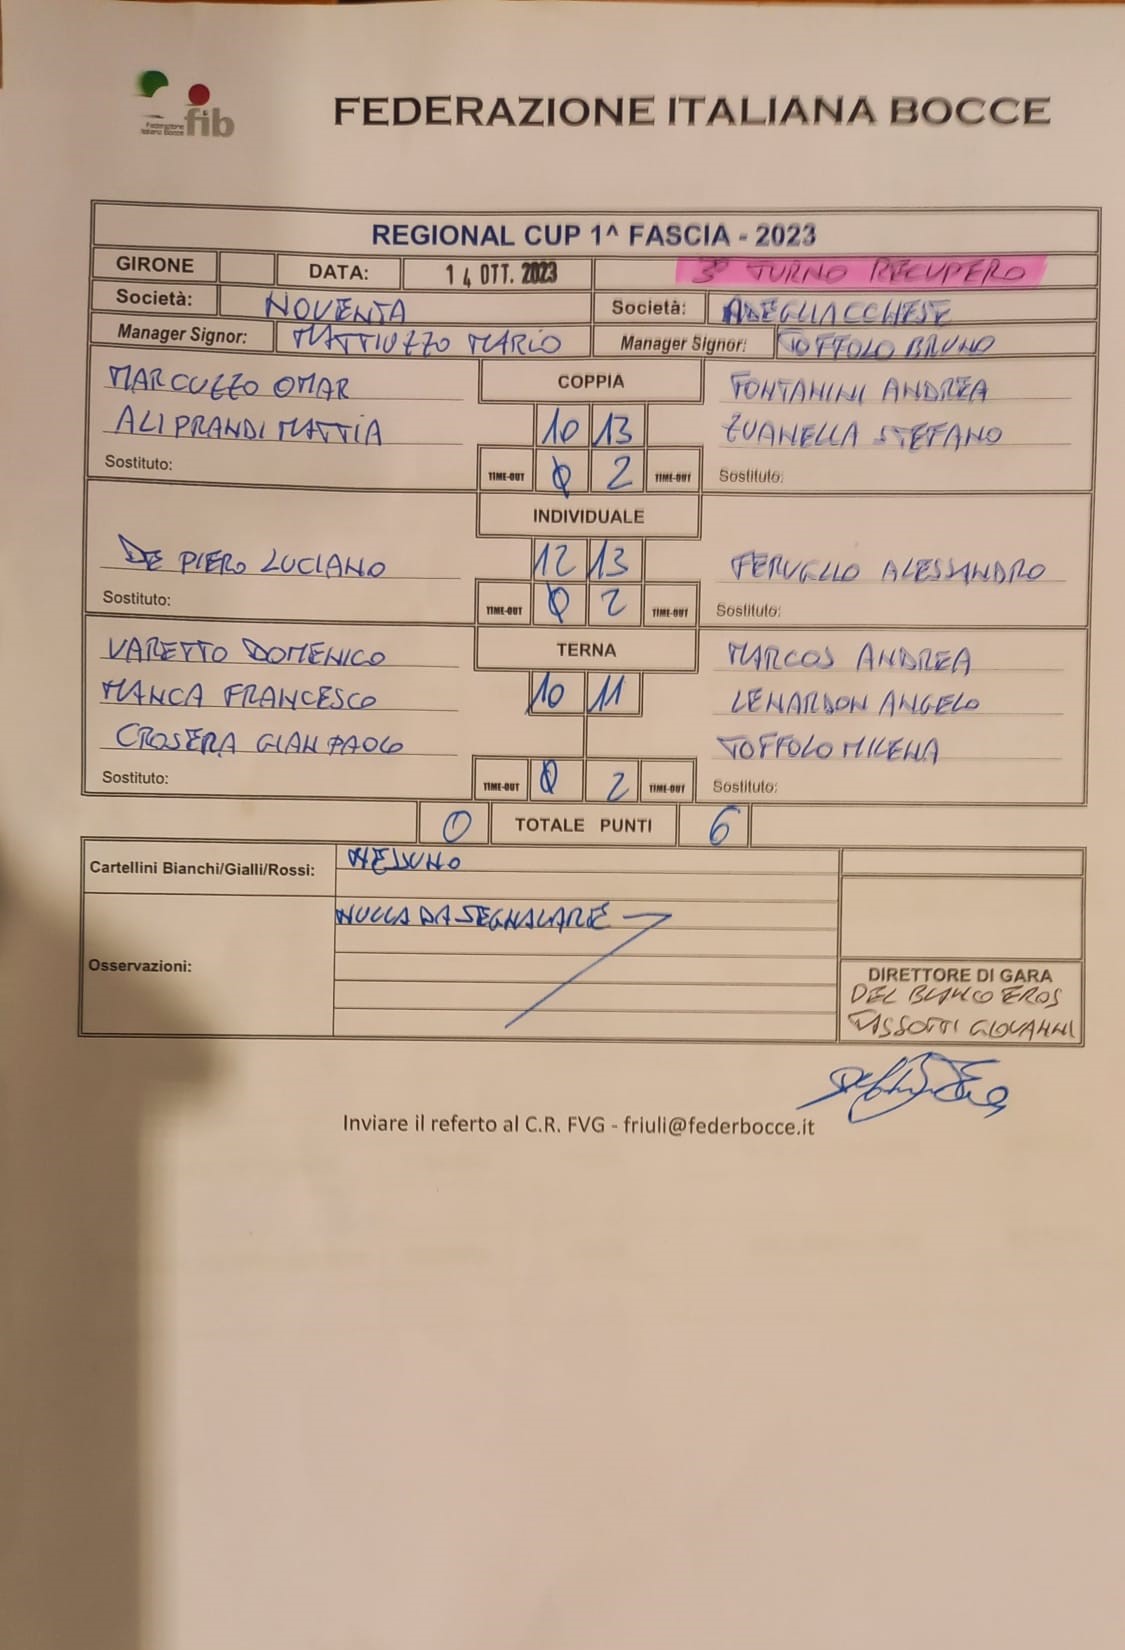 Federazione Italiana Bocce fib
FEDERAZIONE ITALIANA BOCCE
REGIONAL CUP 1^ FASCIA - 2023
GIRONE DATA: 14 OTT. 2023 3° TURNO RECUPERO
Società: NOVENTA Società: ADEGLIACCHESE
Manager Signor: MATTIUZZO MARIO Manager Signor: TOFFOLO BRUNO
MARCUZZO OMAR COPPIA FONTANINI ANDREA
ALIPRANDI MATTIA 10 13 ZUANELLA STEFANO
Sostituto: TIME-OUT 0 2 TIME-OUT Sostituto:
INDIVIDUALE
DE PIERO LUCIANO 12 13 FERUGLIO ALESSANDRO
Sostituto: TIME-OUT 0 2 TIME-OUT Sostituto:
VARETTO DOMENICO TERNA MARCOS ANDREA
MANCA FRANCESCO 10 11 LENARDON ANGELO
CROSERA GIANPAOLO TOFFOLO MILENA
Sostituto: TIME-OUT 0 2 TIME-OUT Sostituto:
0 TOTALE PUNTI 6
Cartellini Bianchi/Gialli/Rossi: NESSUNO
NULLA DA SEGNALARE
Osservazioni:
DIRETTORE DI GARA
DEL BIANCO EROS
TASSOTTI GIOVANNI
Inviare il referto al C.R. FVG - friuli@federbocce.it